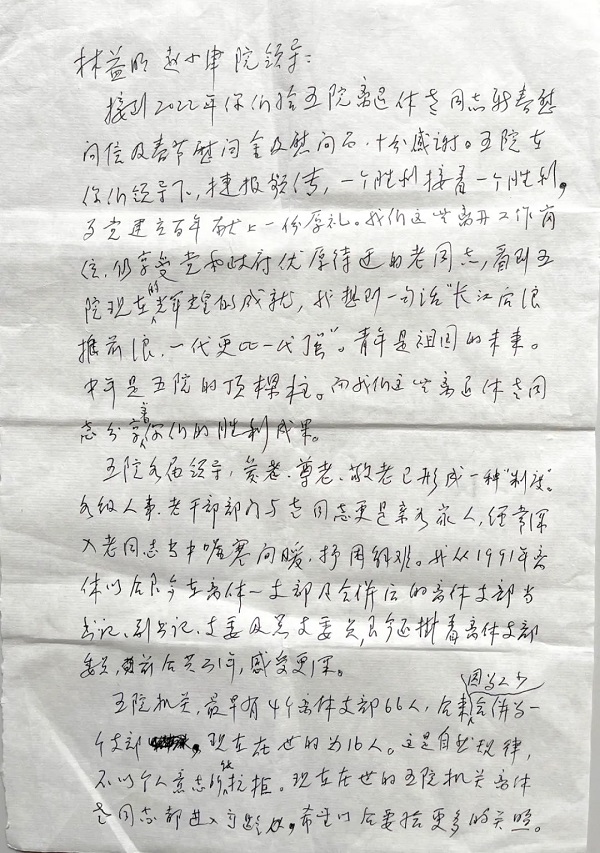 林益明 赵小津 院领导:
接到2022年你们给五院离退休老同志新春慰
问信及春节慰问金及慰问品,十分感谢。五院在
你们领导下,捷报频传,一个胜利接着一个胜利,
为党建立百年献上一份厚礼。我们这些离开工作岗
位,仍享受党和政府优厚待遇的老同志,看到五
院现在的光辉的成就,我想到一句话"长江后浪
推前浪,一代更比一代强"。青年是祖国的未来。
中年是五院的顶梁柱。而我们这些离退休老同
志分享着你们的胜利成果。
五院各届领导,爱老、尊老、敬老已形成一种"制度"。
各级人事、老干部部门与老同志更是亲如家人,经常深
入老同志当中嘘寒问暖,排困解难。我从1991年离
休以后至今在离休一支部及合併后的离休支部当
书记、副书记、支委及党支委员,至今还排着离休支部
委员,前后共31年,感受更深。
五院机关,最早有4个离休支部66人,后来因为人少合併为一
个支部,现在在世的为16人。这是自然规律,
不以个人意志所能抗拒。现在在世的五院机关离休
老同志都进入高龄,希望以后要给更多的关照。